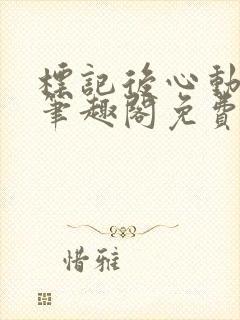 標記後心動
筆趣閣免費
惜雅